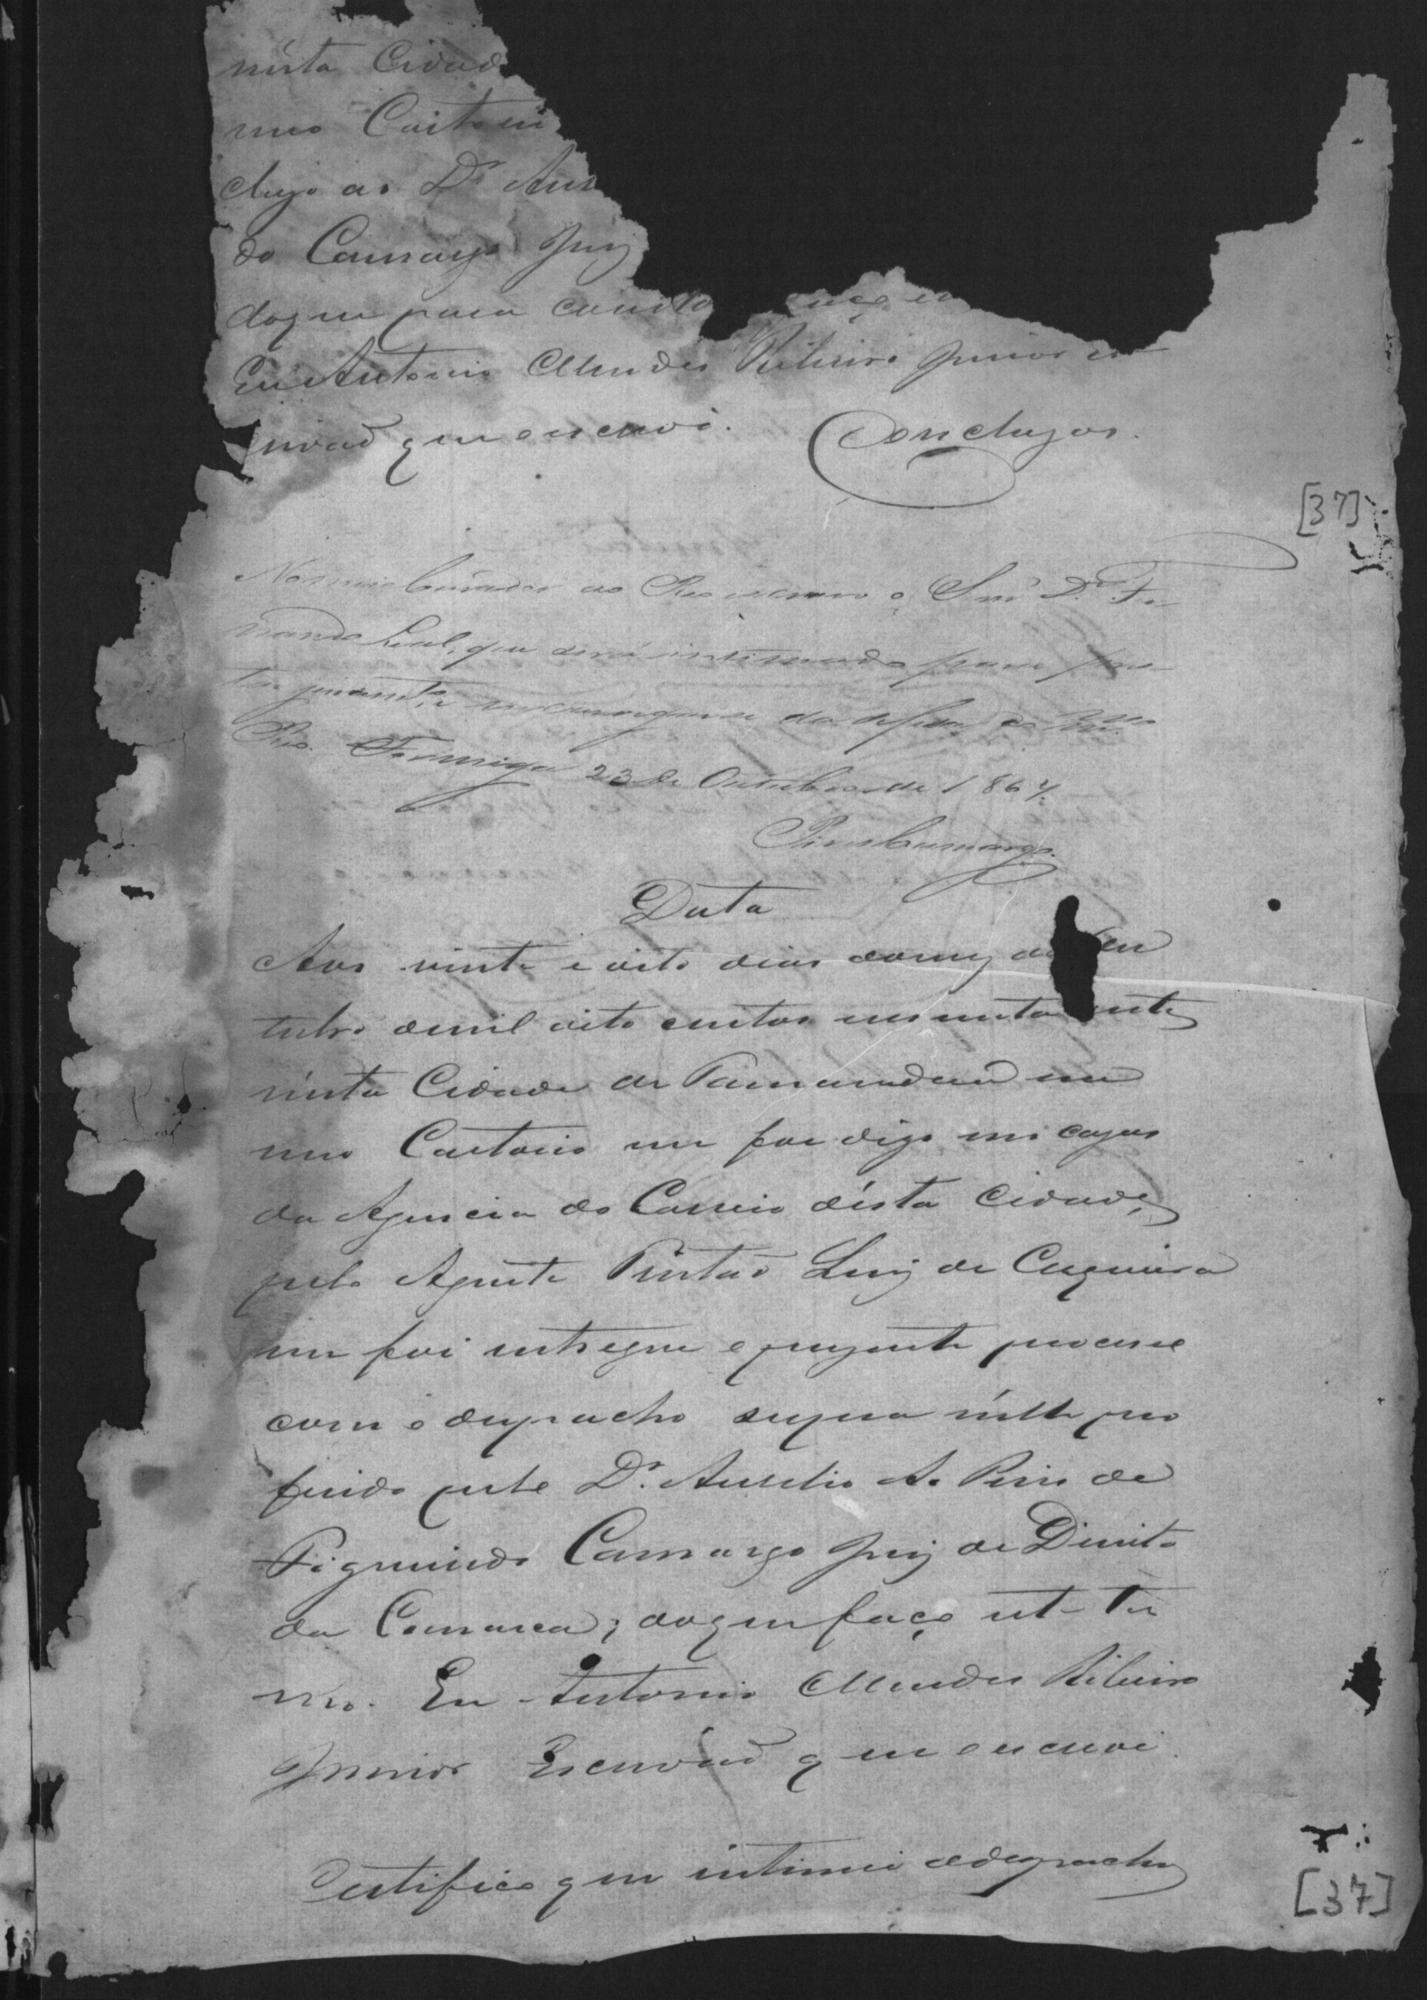 nésta Cidad
meo Cartori
cluzo ao Dr. Aur
do Camargo Juiz
doque para consta faço es
Eu Antonio Mendes Ribeiro Junior es
crivaõ que escrevi.
Concluzos.
[37]
Nomeio Curador ao Reo escravo o Snr. Dr. Fer
nando Leal, que será intimado para
juramento encarregar-se da defesa do
Reo. Formiga 23 de Outubro de 1867.
Pires Camargo.
Data
Aos vinte e oito dias do mez de Ou
tubro de mil oito centos sessenta
nésta Cidade de Tamanduá em
meo Cartorio me foi digo em cazas
da Agencia do Correio désta Cidade,
pelo Agente Luiz de Cerqueira
me foi entregue o prezente processo
com o despacho supra nélle pro
ferido pelo Dr. Aurelio A. Pires de
Figueiredo Camargo Juiz de Direito
da Comarca; do que faço este Ter
mo. Eu Antonio Mendes Ribeiro
Junior Escrivaõ que escrevi.
Certifico que intimei o despacho
[37]